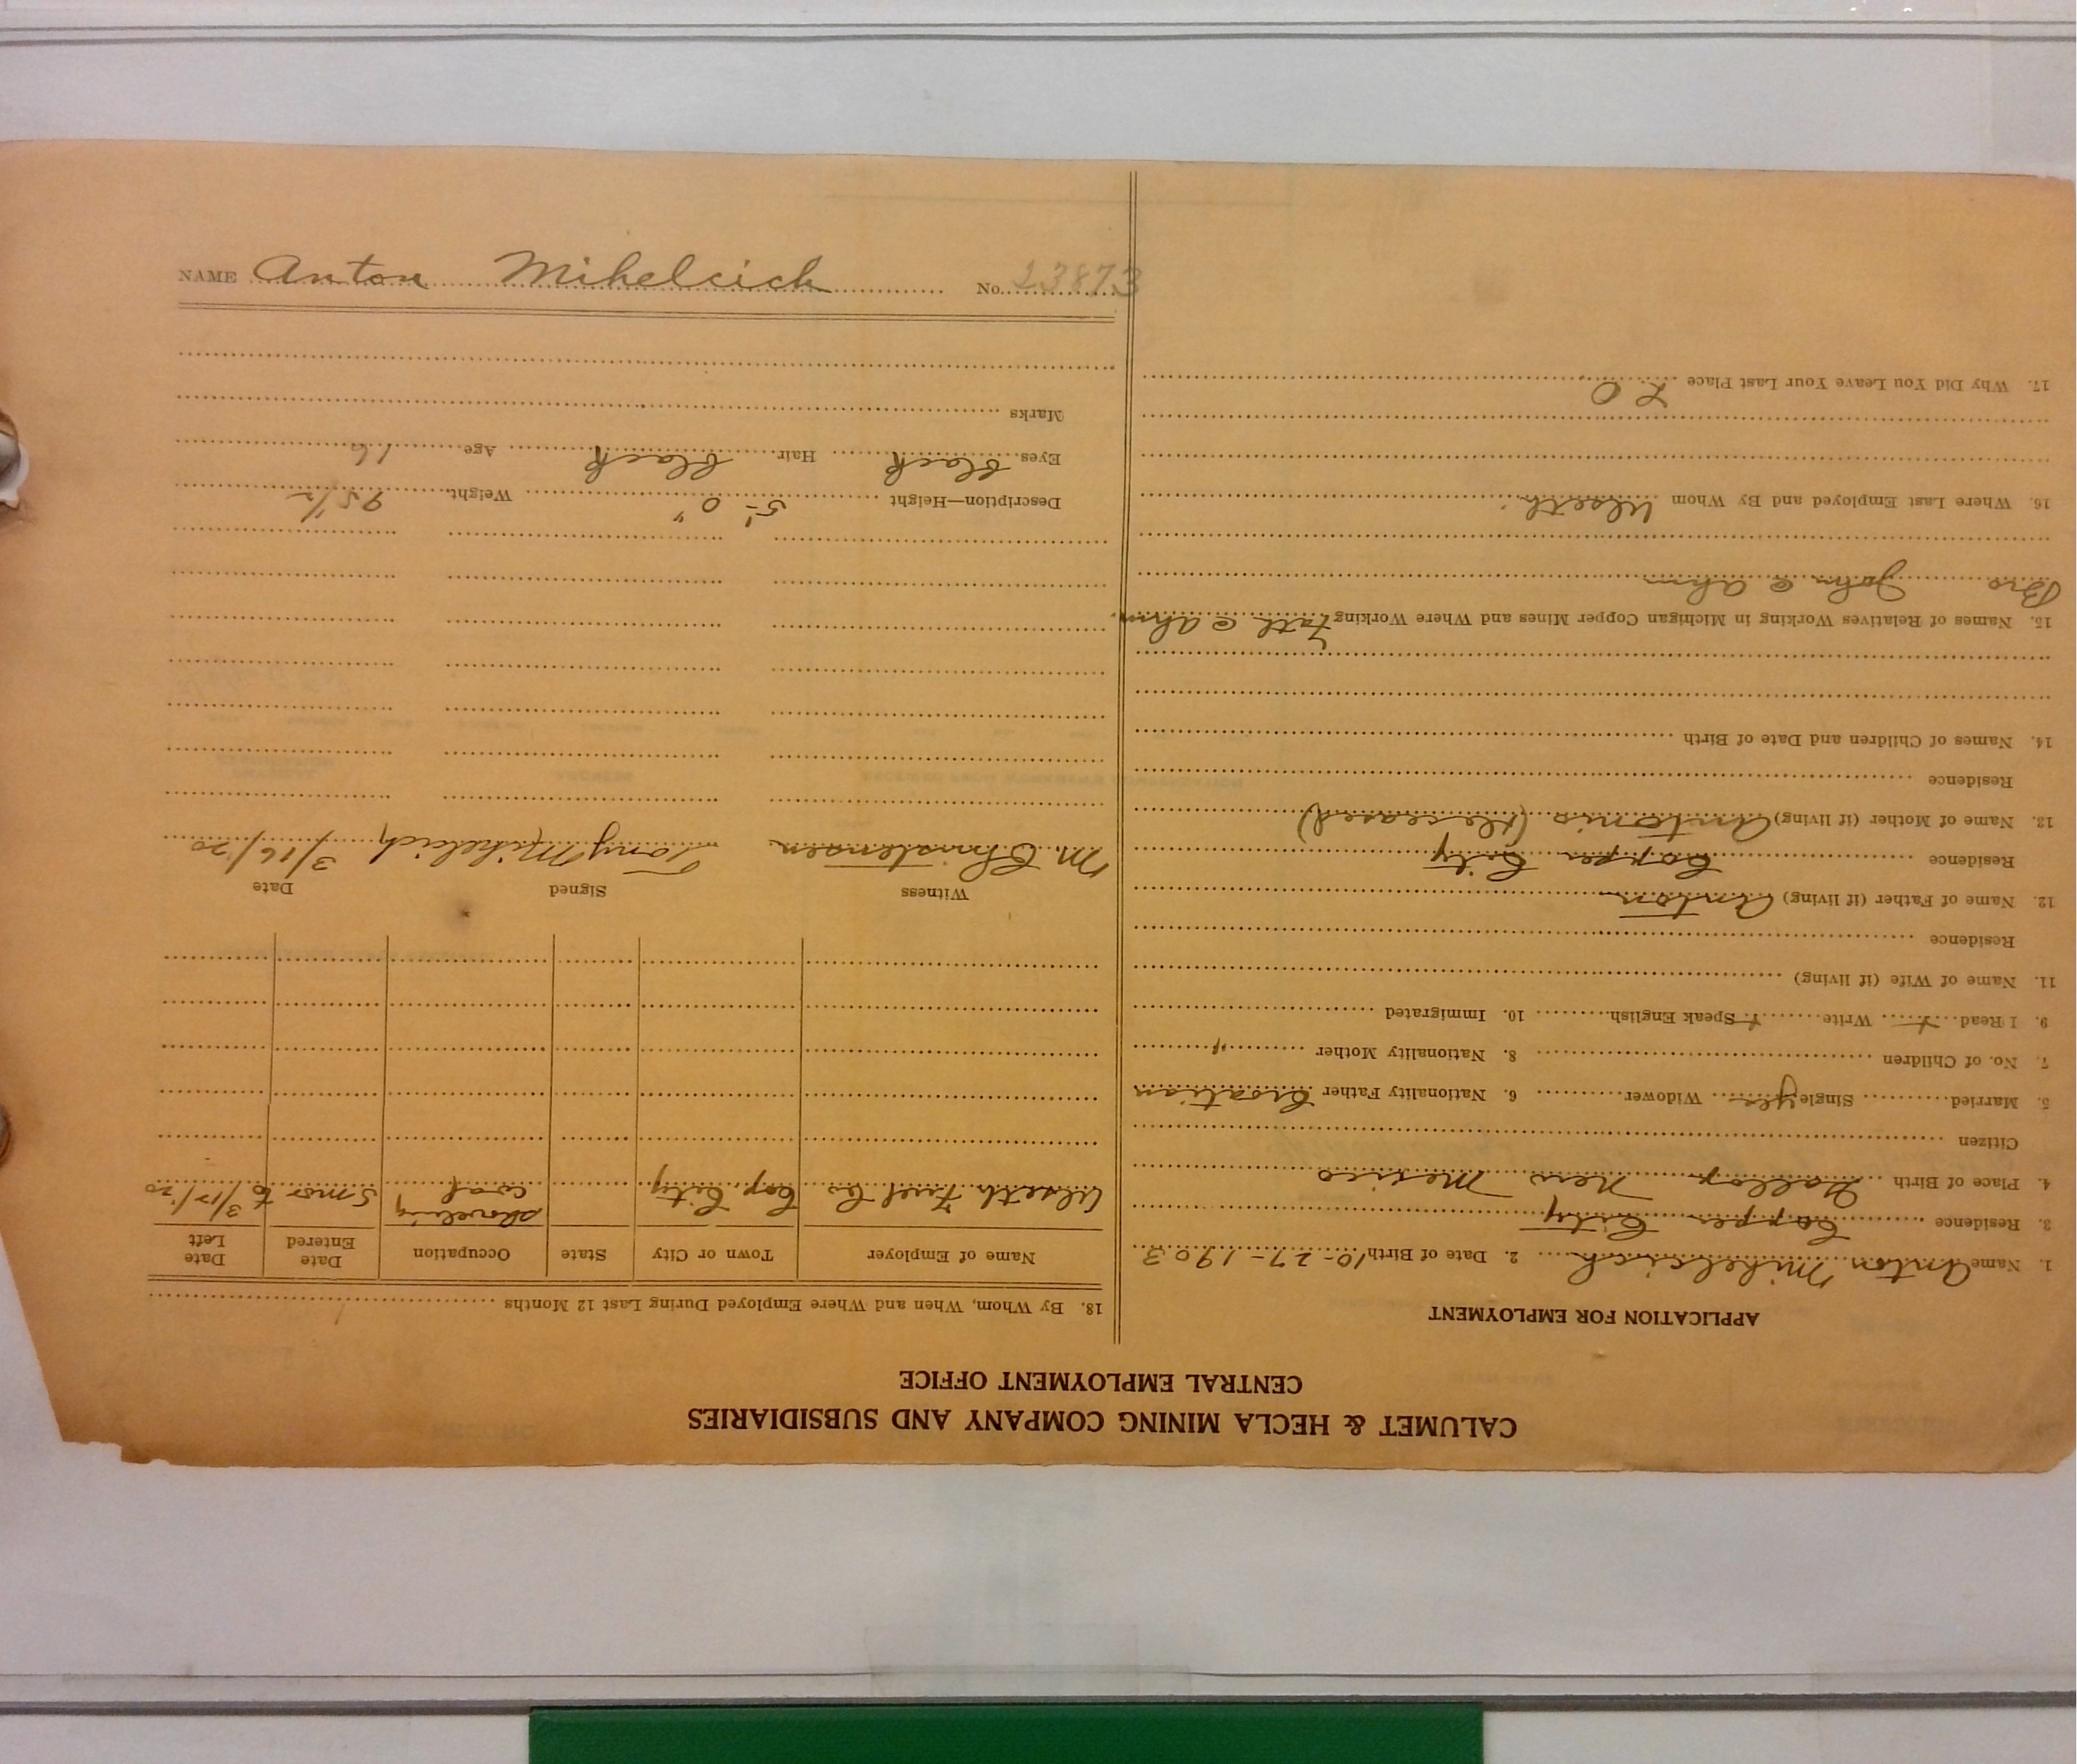 CALUMET & HECLA MINING COMPANY AND SUBSIDIARIES
CENTRAL EMPLOYMENT OFFICE
APPLICATION FOR EMPLOYMENT
1. Name Anton Mihelcich 2. Date of Birth 10-27-1903
3. Residence Copper City
4. Place of Birth Gallop New Mexico
Citizen
5. Married Single yes Widower 6. Nationality Father Croatian
7. No. of Children 8. Nationality Mother "
9. I Read + Write + Speak English 10. Immigrated
11. Name of Wife (if living)
Residence
12. Name of Father (if living) Anton
Residence Copper City
13. Name of Mother (if living) Antonia (deceased)
Residence
14. Names of Children and Date of Birth
15. Names of Relatives Working in Michigan Copper Mines and Where Working Fath @ Ahm.
Bro John @ Ahm
16. Where Last Employed and By Whom Ulseth
17. Why Did You Leave Your Last Place LO
18. By Whom, When and Where Employed During Last 12 Months
Name of Employer Town or City State Occupation Date Entered Date Left
Ulseth Fuel Co Cop. City shoveling coal 5 mos to 3/15/20
Witness Signed Date
M. Christensen Tony Mihelcich 3/16/20
Description—Height 5'-0" Weight 95 1/2
Eyes black Hair black Age 16
Marks
NAME Anton Mihelcich No. 23873